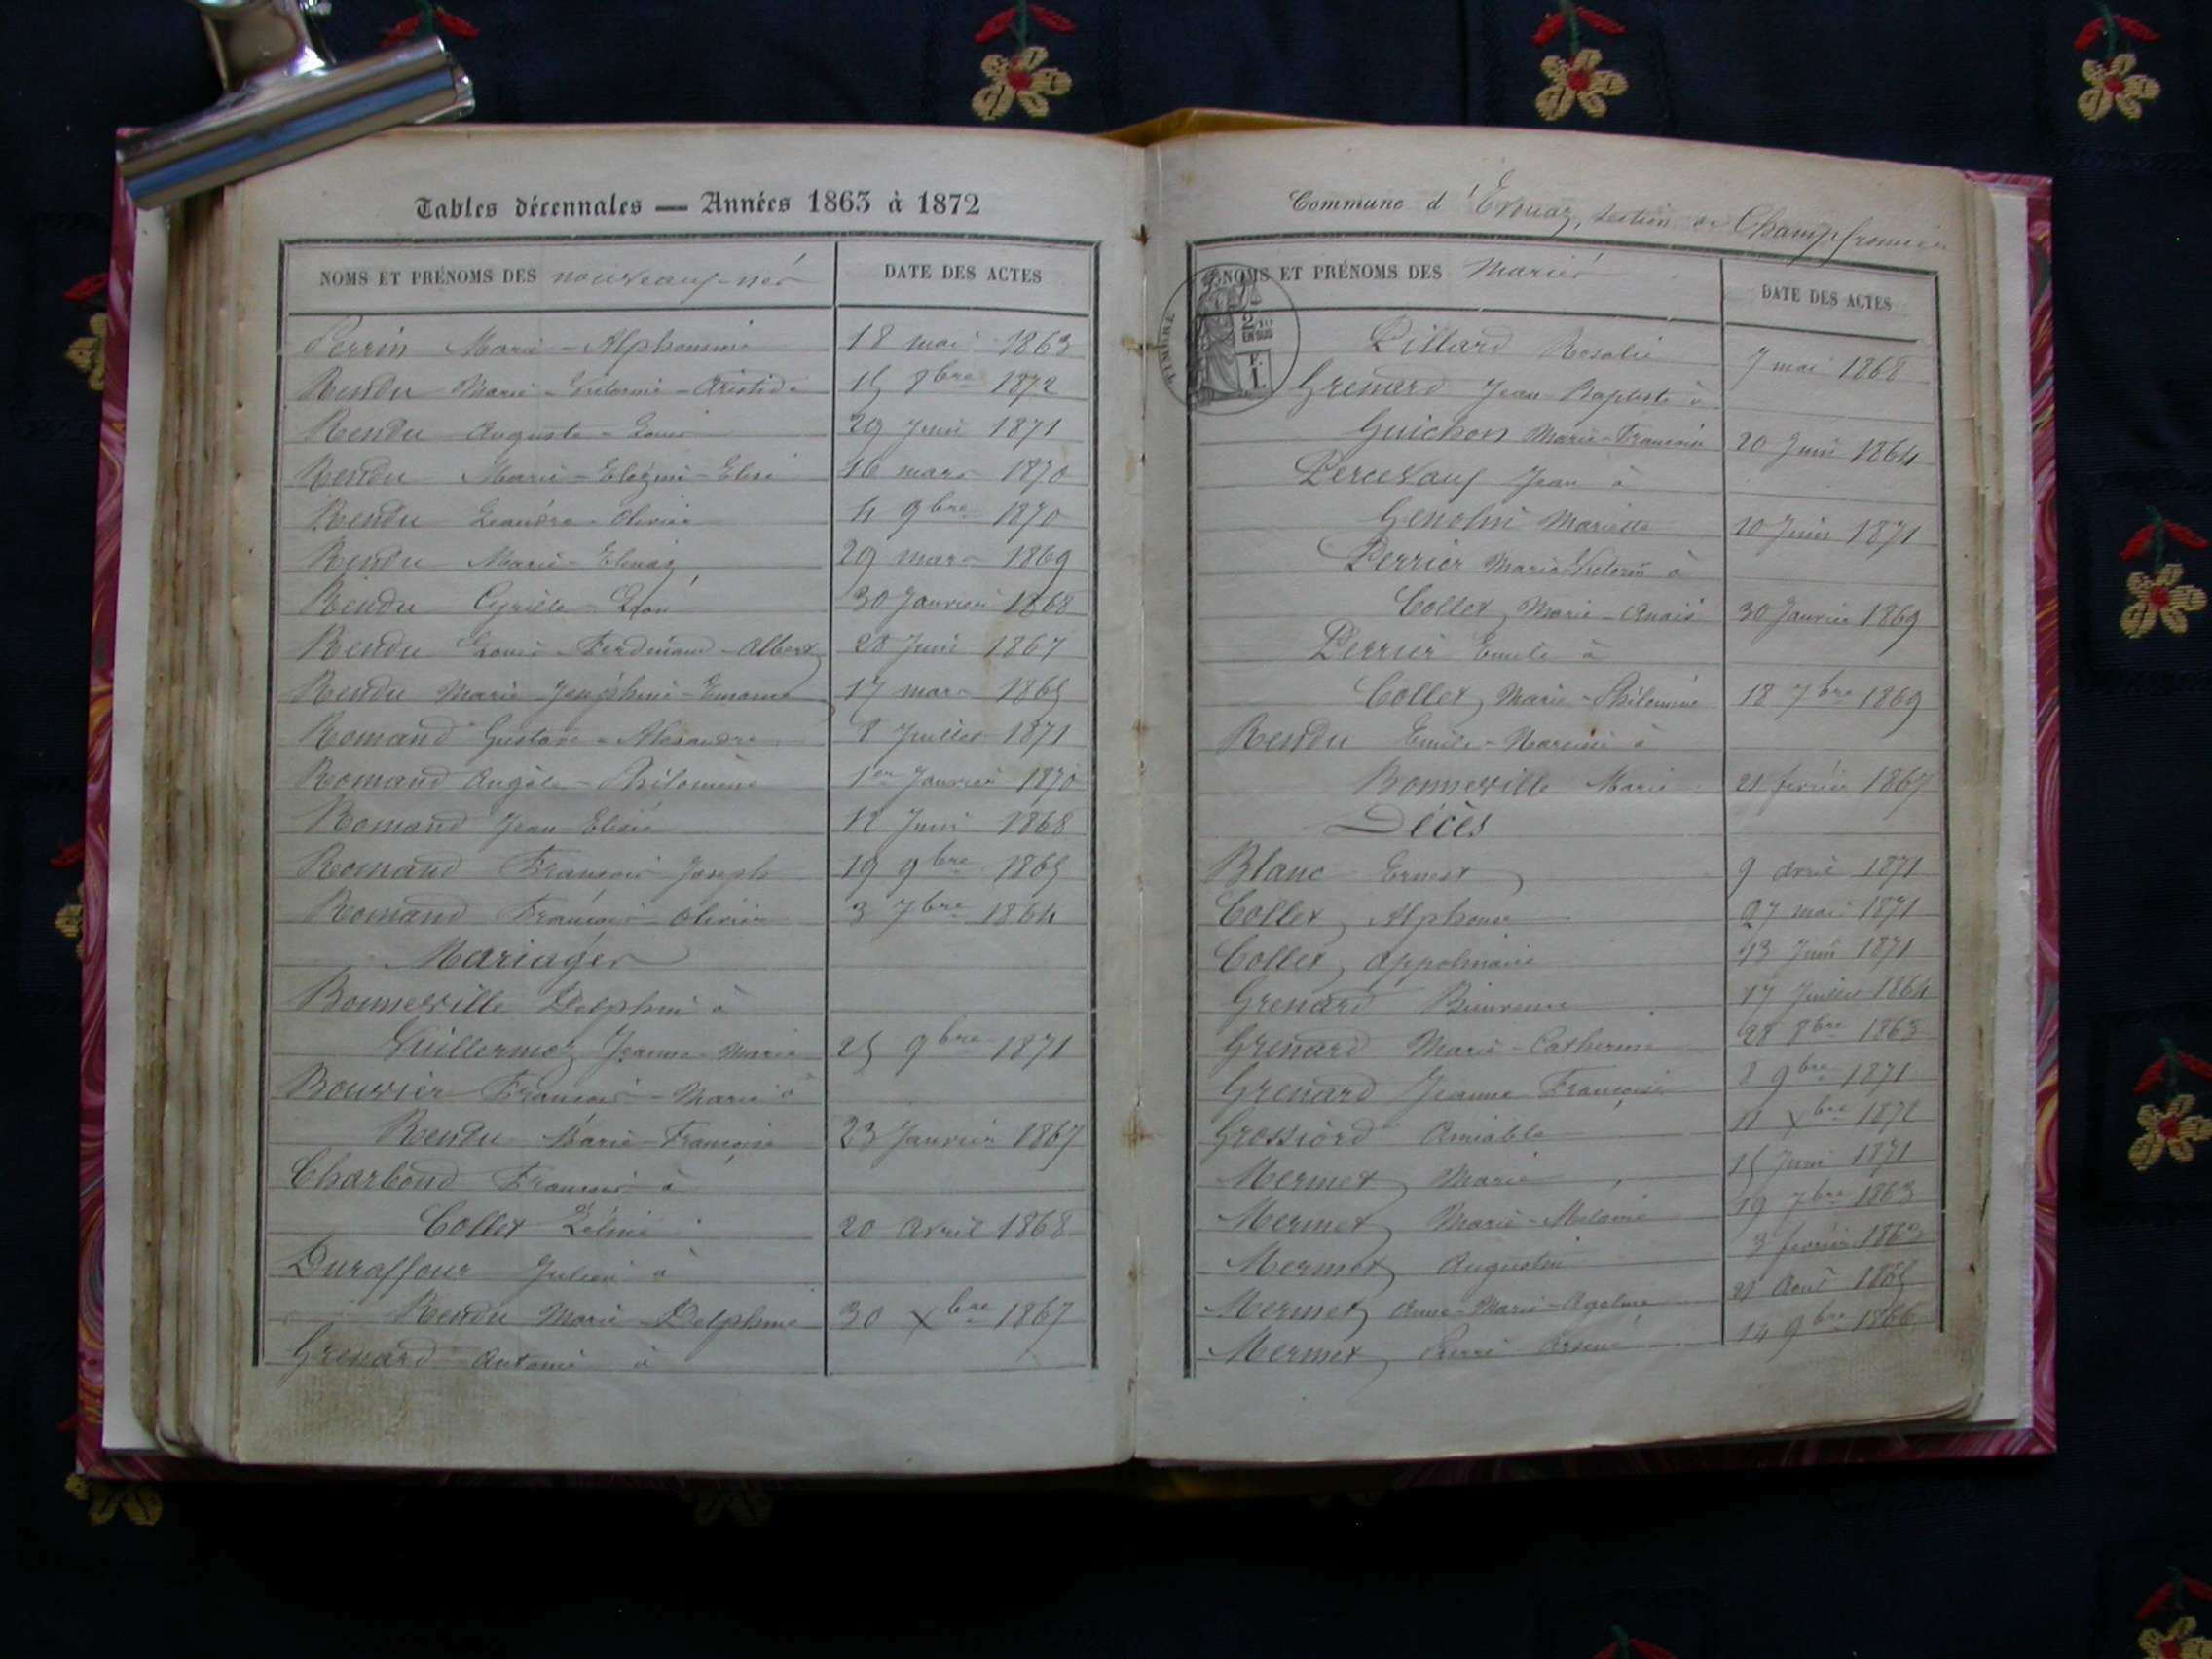 Tables décennales — Années 1863 à 1872
NOMS ET PRÉNOMS DES nouveaux-nés DATE DES ACTES
Perrin Marie-Alphonsine 18 mai 1863
Rendu Marie-Victorine-Aristide 15 8bre 1872
Rendu Auguste-Louis 29 Juin 1871
Rendu Marie - Elise 16 mars 1870
Rendu Léandre-Olivier 4 9bre 1870
Rendu Marie- 29 mars 1869
Rendu Cyrille-Léon 30 Janvier 1868
Rendu Louis-Ferdinand-Albert 28 Juin 1867
Rendu Marie-Joséphine- 17 mars 1865
Romand Gustave-Alexandre 8 Juillet 1871
Romand Angèle-Philomène 1er Janvier 1870
Romand Jean-Elisée 12 Juin 1868
Romand François Joseph 19 9bre 1865
Romand François-Olivier 3 7bre 1864
Mariages
Bonneville Delphin à
Guillermoz Jeanne-Marie 25 9bre 1871
Bouvier François-Marie à
Rendu Marie-Françoise 23 Janvier 1867
Charbond François à
Collet Zélie 20 Avril 1868
Duraffour Julien à
Rendu Marie-Delphine 30 Xbre 1867
Grenard Antoine à
Commune d'Evouaz, section de Champfromier
NOMS ET PRÉNOMS DES Mariés DATE DES ACTES
TIMBRE
2/10
EN SUS
Pillard Rosalie 7 mai 1868
Grenard Jean-Baptiste à
Guichon Marie-Françoise 20 Juin 1864
Percevaux Jean à
Genolin Mariette 10 Juin 1871
Perrier Marie-Victorin à
Collet Marie-Anaïs 30 Janvier 1869
Perrier Emile à
Collet Marie-Philomène 18 7bre 1869
Rendu Emile-Narcisse à
Bonneville Marie 21 février 1867
Décès
Blanc Ernest 9 avril 1871
Collet Alphonse 27 mai 1871
Collet Appolinaire 13 Juin 1871
Grenard Bienvenue 17 Juillet 1864
Grenard Marie-Catherine 28 8bre 1863
Grenard Jeanne Françoise 8 9bre 1871
Grossiord Amiable 11 Xbre 1872
Mermet Marie 15 Juin 1871
Mermet Marie-Mélanie 19 7bre 1863
Mermet Augustin 3 février 1863
Mermet Anne-Marie- Août 1865
Mermet Pierre-Arsène 14 9bre 1866